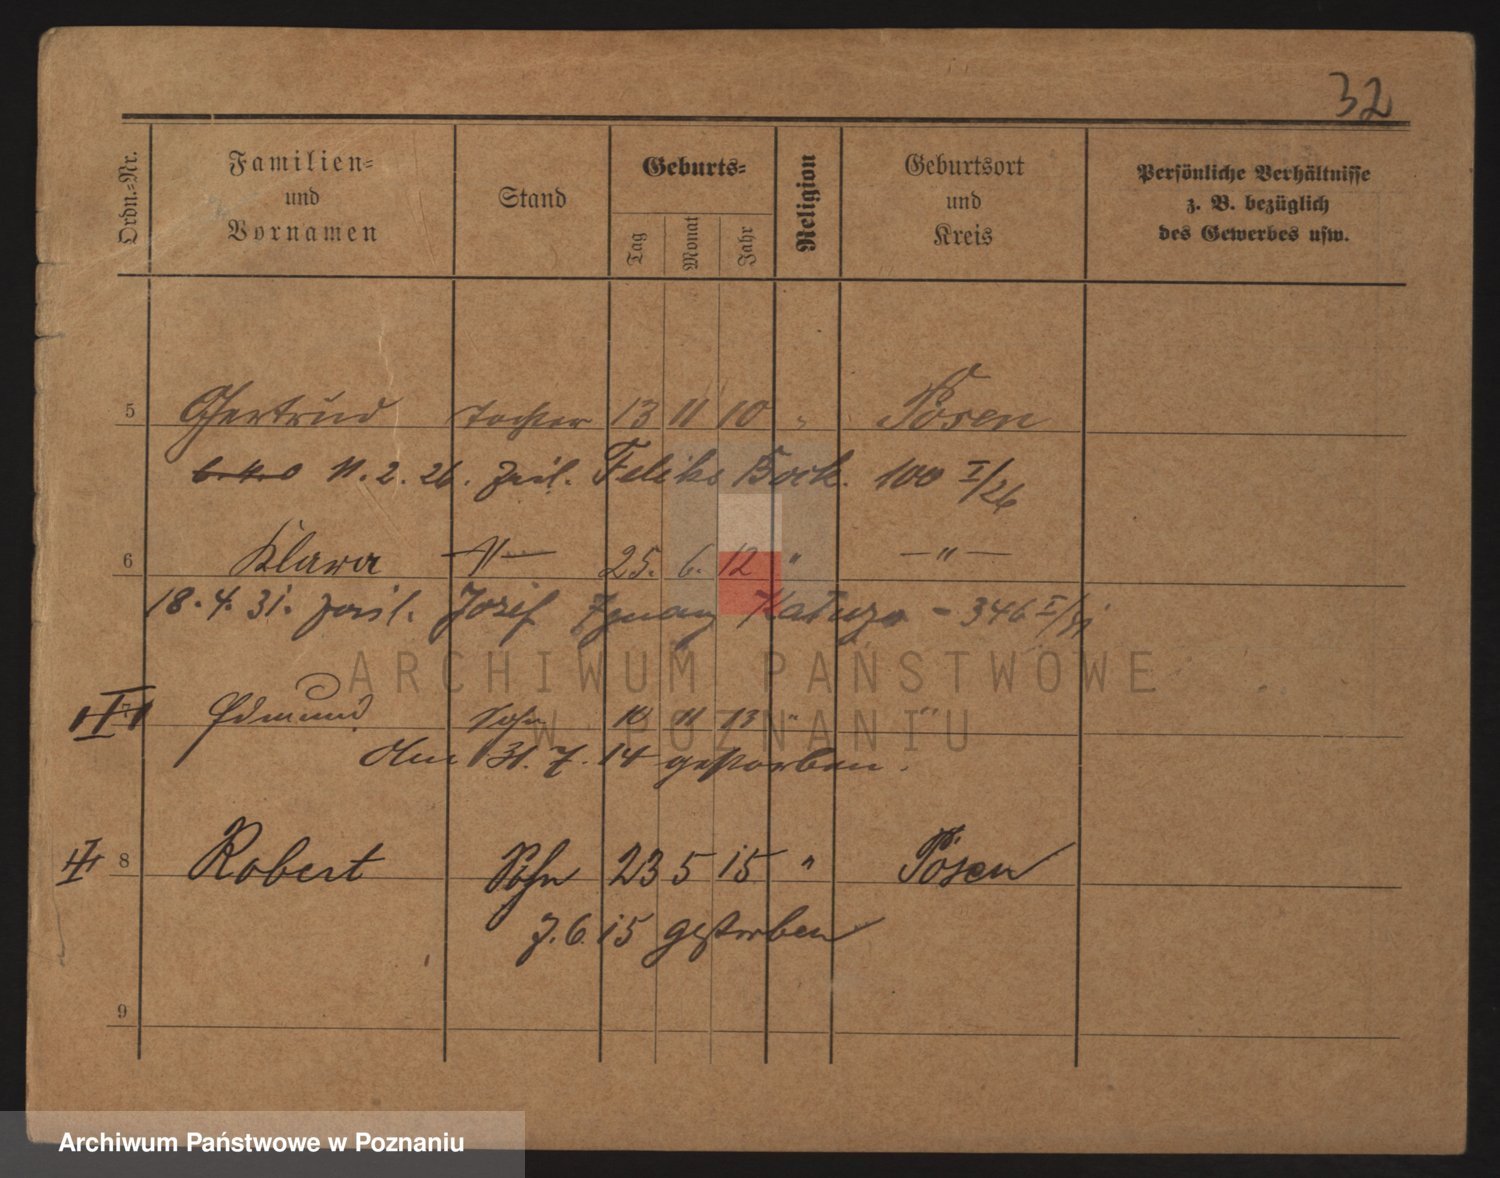 32
Ordn.-Nr. Familien- und Vornamen Stand Geburts- Tag Monat Jahr Religion Geburtsort und Kreis Persönliche Verhältnisse z. B. bezüglich des Gewerbes usw.
5 Gertrud Tochter 13 11 10 " Posen
11. 2. 26. Feliks Bock. 100 I/26
6 Klara —"— 25. 6. 12 " —"—
18. 4. 31. Józef Ignacy - 346 I/31
Edmund Sohn 10 11 13 " "
Am 31. 7. 14 gestorben.
8 Robert Sohn 23 5 15 " Posen
7. 6. 15 gestorben
9
ARCHIWUM PAŃSTWOWE
W POZNANIU
Archiwum Państwowe w Poznaniu